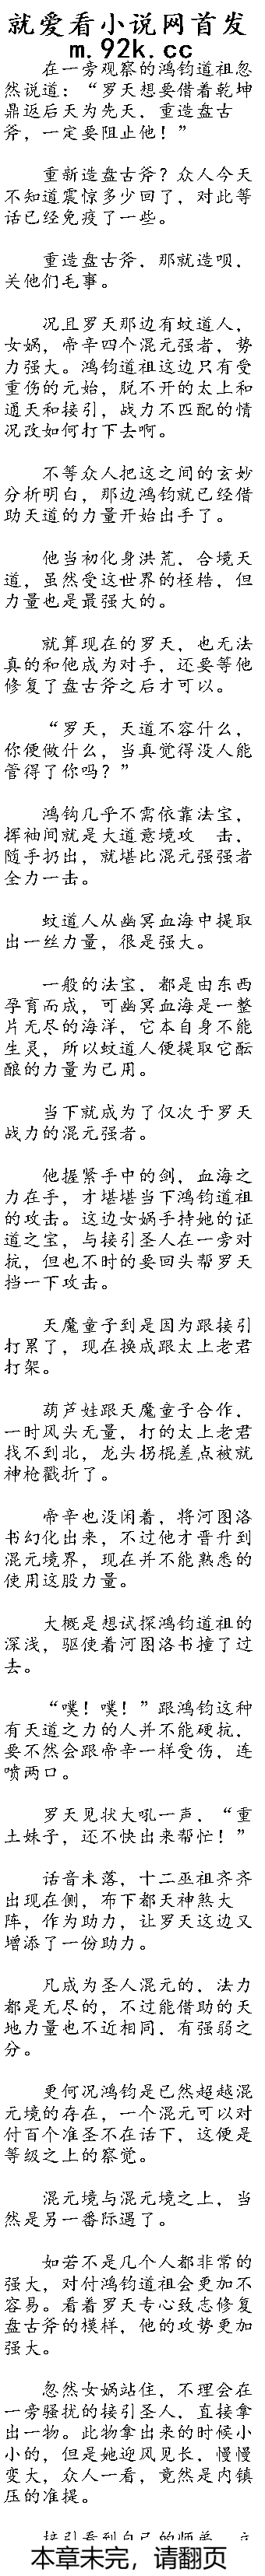 就爱看小说网首发
m.92k.cc
在一旁观察的鸿钧道祖忽
然说道：“罗天想要借着乾坤
鼎返后天为先天，重造盘古
斧，一定要阻止他！”
重新造盘古斧？众人今天
不知道震惊多少回了，对此等
话已经免疫了一些。
重造盘古斧，那就造呗，
关他们毛事。
况且罗天那边有蚊道人，
女娲，帝辛四个混元强者，势
力强大。鸿钧道祖这边只有受
重伤的元始，脱不开的太上和
通天和接引，战力不匹配的情
况改如何打下去啊。
不等众人把这之间的玄妙
分析明白，那边鸿钧就已经借
助天道的力量开始出手了。
他当初化身洪荒，合境天
道，虽然受这世界的桎梏，但
力量也是最强大的。
就算现在的罗天，也无法
真的和他成为对手，还要等他
修复了盘古斧之后才可以。
“罗天，天道不容什么，
你便做什么，当真觉得没人能
管得了你吗？”
鸿钩几乎不需依靠法宝，
挥袖间就是大道意境攻　击，
随手扔出，就堪比混元强强者
全力一击。
蚊道人从幽冥血海中提取
出一丝力量，很是强大。
一般的法宝，都是由东西
孕育而成，可幽冥血海是一整
片无尽的海洋，它本自身不能
生灵，所以蚊道人便提取它酝
酿的力量为己用。
当下就成为了仅次于罗天
战力的混元强者。
他握紧手中的剑，血海之
力在手，才堪堪当下鸿钧道祖
的攻击。这边女娲手持她的证
道之宝，与接引圣人在一旁对
抗，但也不时的要回头帮罗天
挡一下攻击。
天魔童子到是因为跟接引
打累了，现在换成跟太上老君
打架。
葫芦娃跟天魔童子合作，
一时风头无量，打的太上老君
找不到北，龙头拐棍差点被弑
神枪戳折了。
帝辛也没闲着，将河图洛
书幻化出来，不过他才晋升到
混元境界，现在并不能熟悉的
使用这股力量。
大概是想试探鸿钧道祖的
深浅，驱使着河图洛书撞了过
去。
“噗！噗！”跟鸿钧这种
有天道之力的人并不能硬抗，
要不然会跟帝辛一样受伤，连
喷两口。
罗天见状大吼一声，“重
土妹子，还不快出来帮忙！”
话音未落，十二巫祖齐齐
出现在侧，布下都天神煞大
阵，作为助力，让罗天这边又
增添了一份助力。
凡成为圣人混元的，法力
都是无尽的，不过能借助的天
地力量也不近相同，有强弱之
分。
更何况鸿钧是已然超越混
元境的存在，一个混元可以对
付百个准圣不在话下，这便是
等级之上的察觉。
混元境与混元境之上，当
然是另一番际遇了。
如若不是几个人都非常的
强大，对付鸿钧道祖会更加不
容易。看着罗天专心致志修复
盘古斧的模样，他的攻势更加
强大。
忽然女娲站住，不理会在
一旁骚扰的接引圣人，直接拿
出一物。此物拿出来的时候小
小的，但是她迎风见长，慢慢
变大，众人一看，竟然是内镇
压的准提。
接引看到自己的师弟，立
本章未完，请翻页